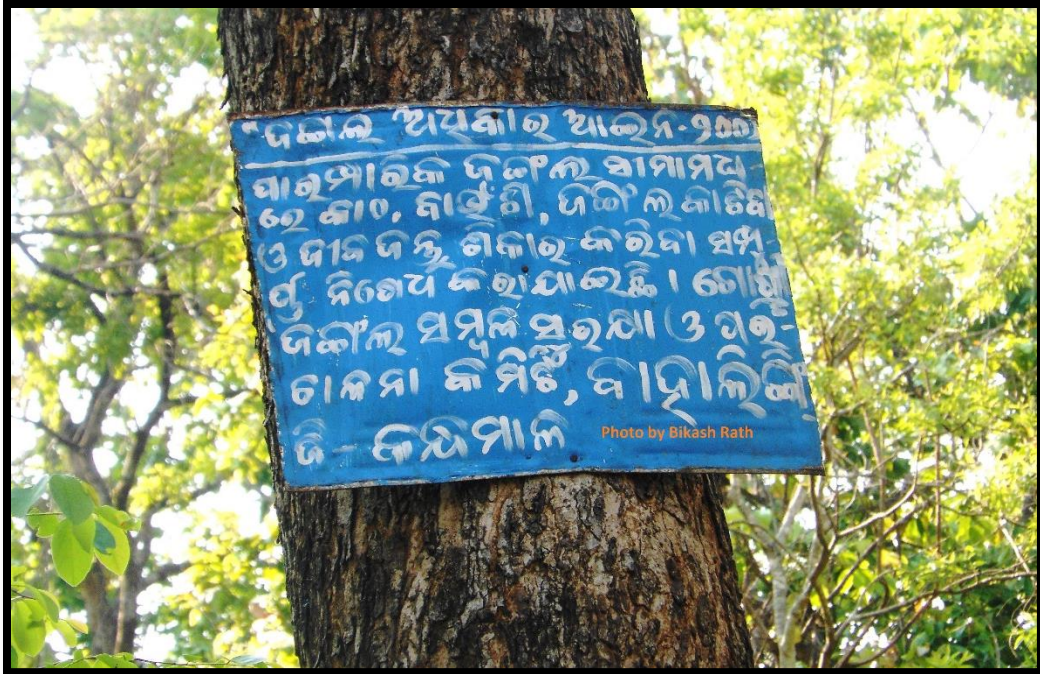 "ଜଙ୍ଗଲ ଅଧିକାର ଆଇନ-୨୦୦
ପାରମ୍ପାରିକ ଜଙ୍ଗଲ ସୀମାମଧ୍ୟ
ରେ କାଠ, ବାଉଁଶ, ଜଙ୍ଗଲ କାଟିବା
ଓ ଜୀବଜନ୍ତୁ ଶିକାର କରିବା ସମ୍ପୂ-
ର୍ଣ୍ଣ ନିଶେଧ କରାଯାଇଛି । ଗୋଷ୍ଠୀ
ଜଙ୍ଗଲ ସମ୍ବଳ ସୁରକ୍ଷା ଓ ପରି-
ଚାଳନା କମିଟି,
ଜି - କନ୍ଧମାଳ
Photo by Bikash Rath